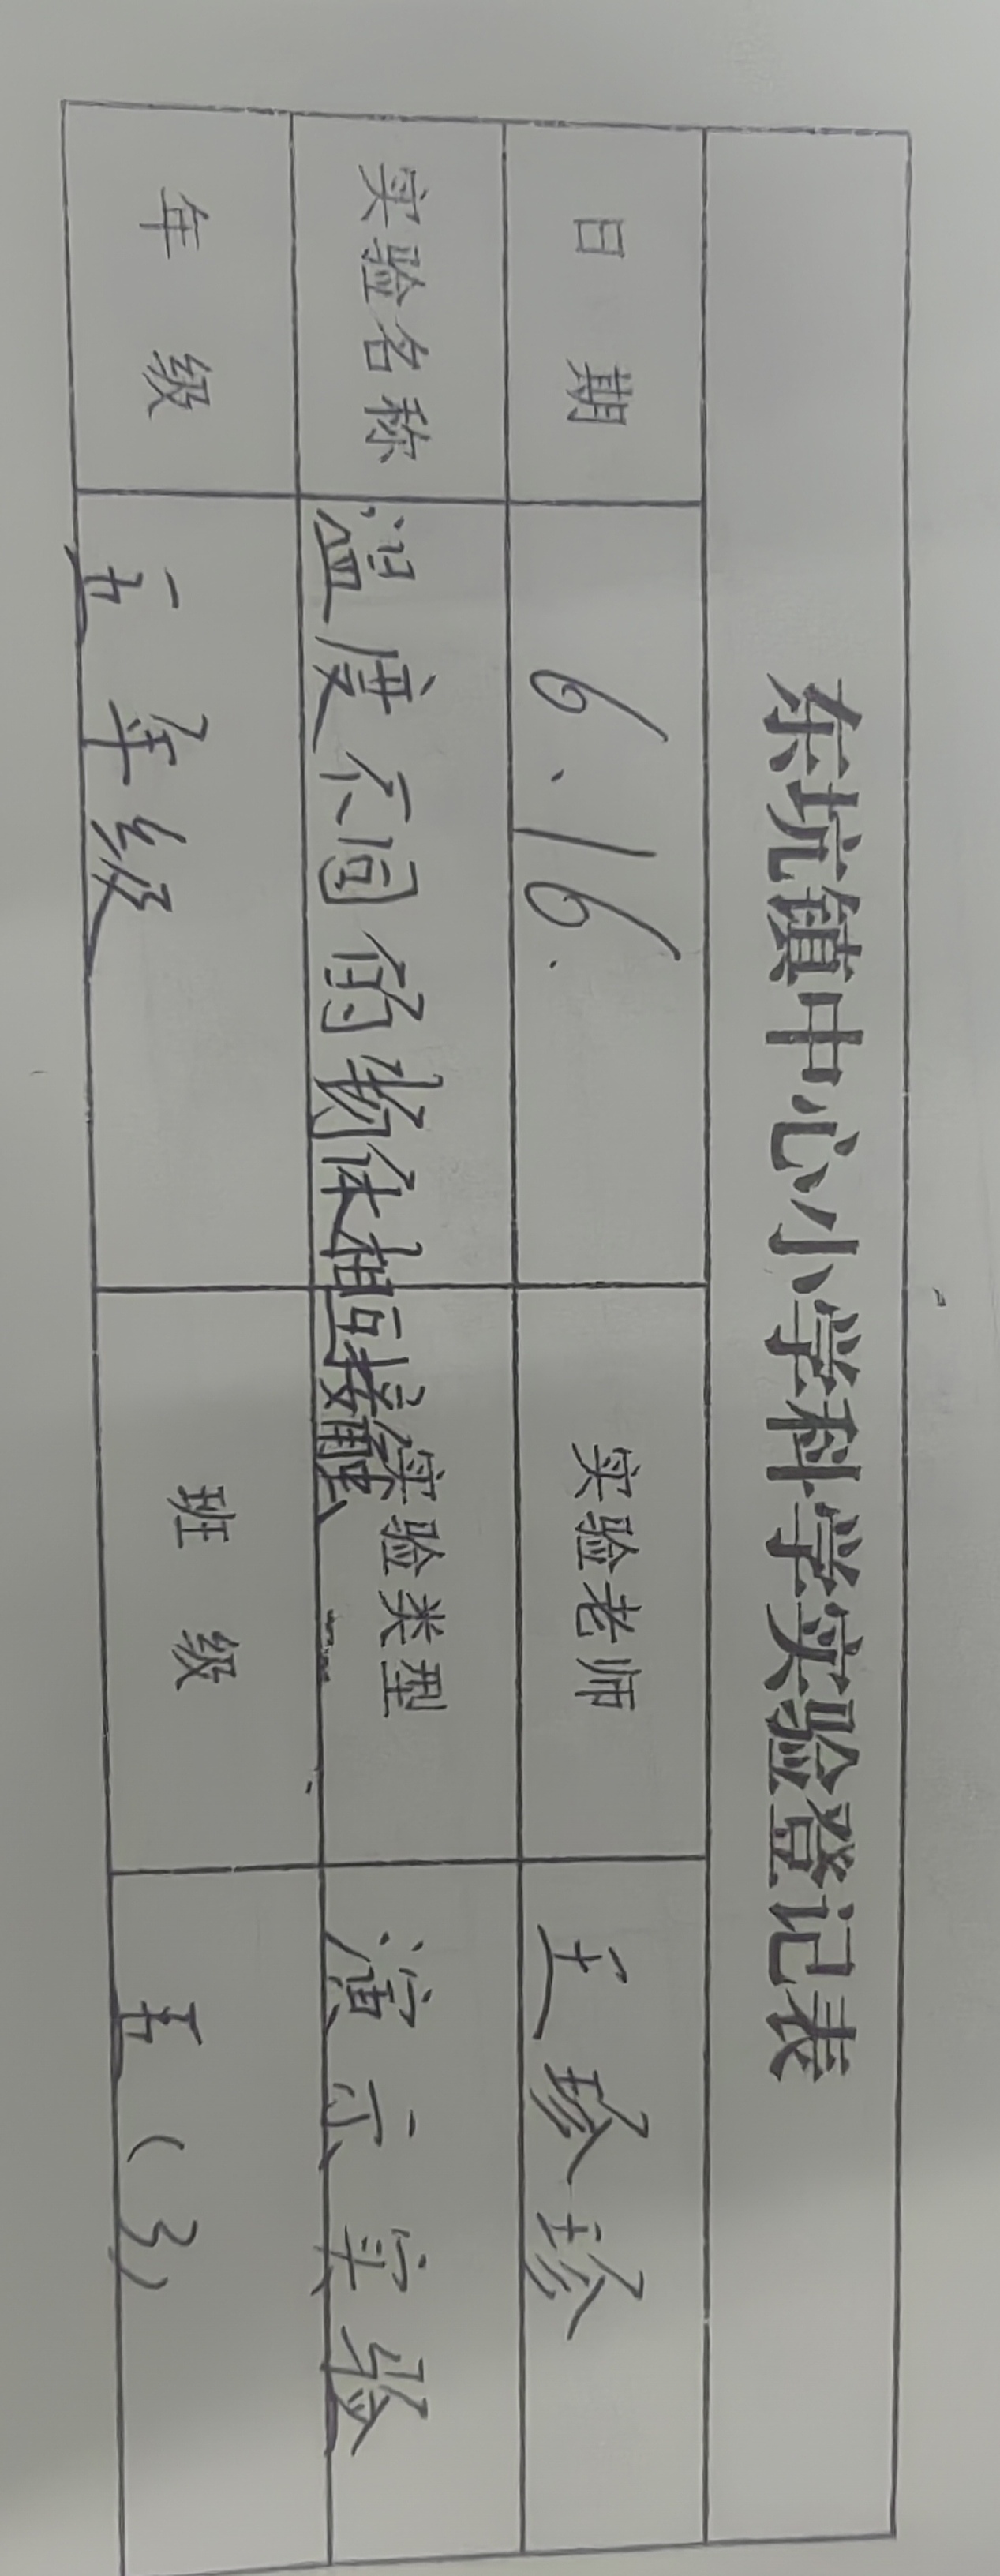 东坑镇中心小学科学实验登记表
日期 6.16. 实验老师 王珍珍
实验名称 温度不同的物体相互接触 实验类型 演示实验
年级 五年级 班级 五(3)